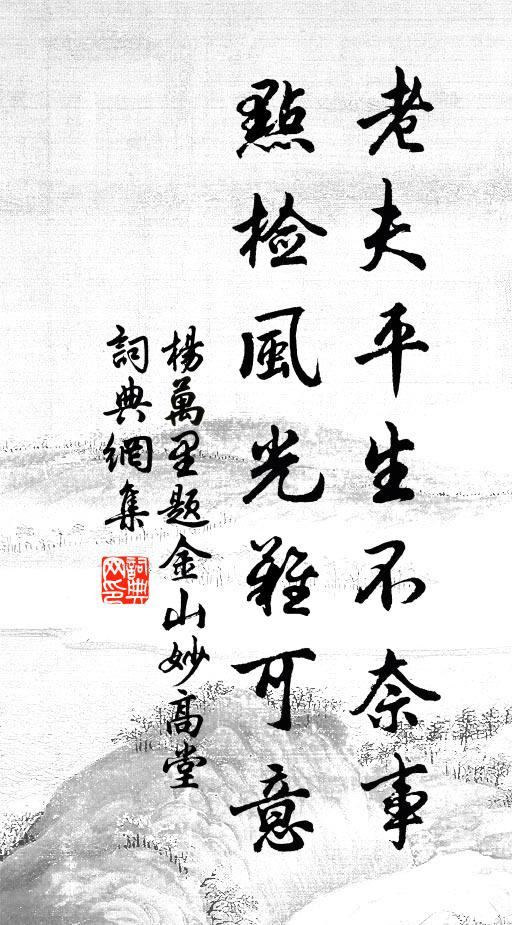 老夫平生不奈事
點檢風光難可意
楊萬里题金山妙高堂
詞典網集
詞典网印